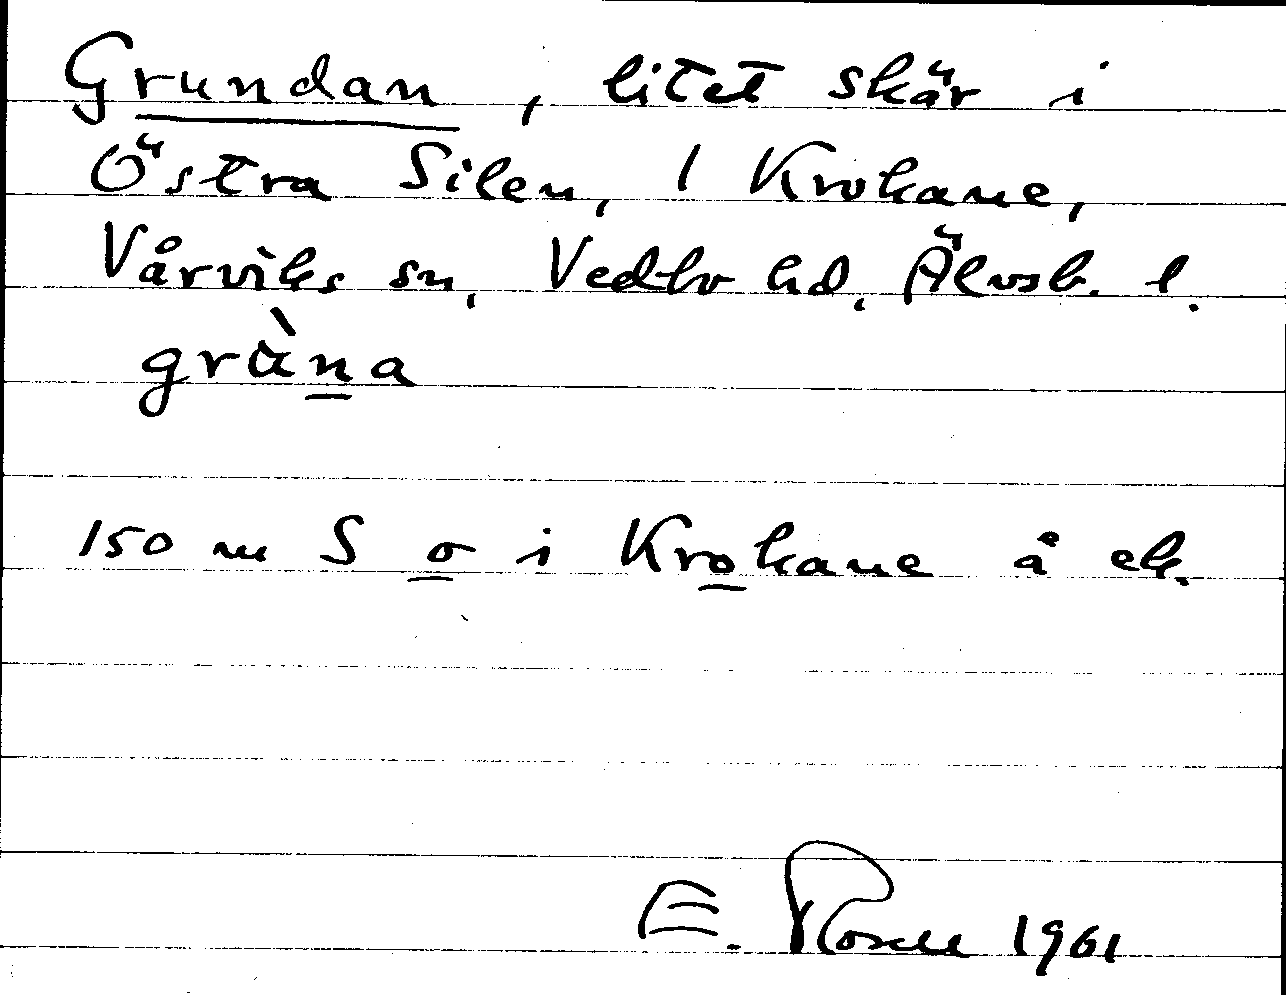 Grundan, litet skär i
Östra Silen, 1 Krokane,
Vårviks sn, Vedbo hd, Älvsb. l.
grùna
150 m S o i Krokane å ek.
E. Rosell 1961